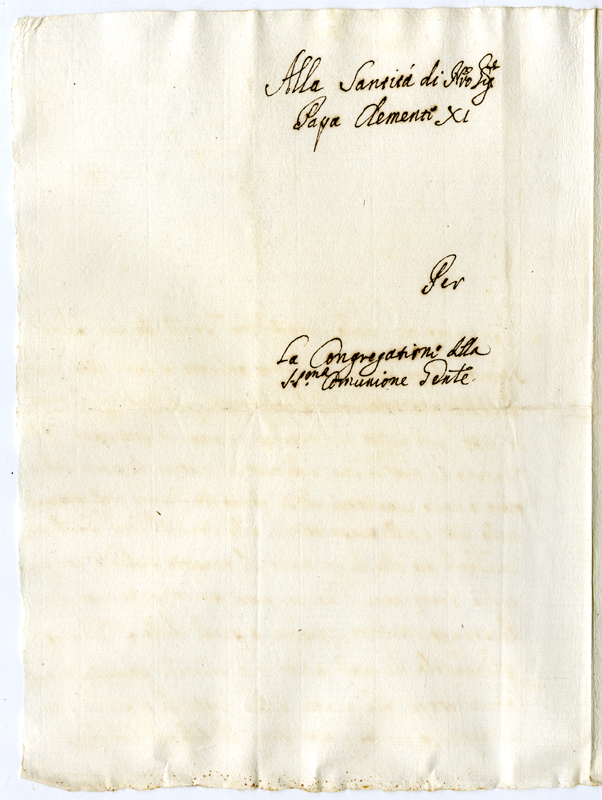 Alla Santitá di Nro Sigre
Papa Clemente XI
Per
La Congregatione della
Comunione